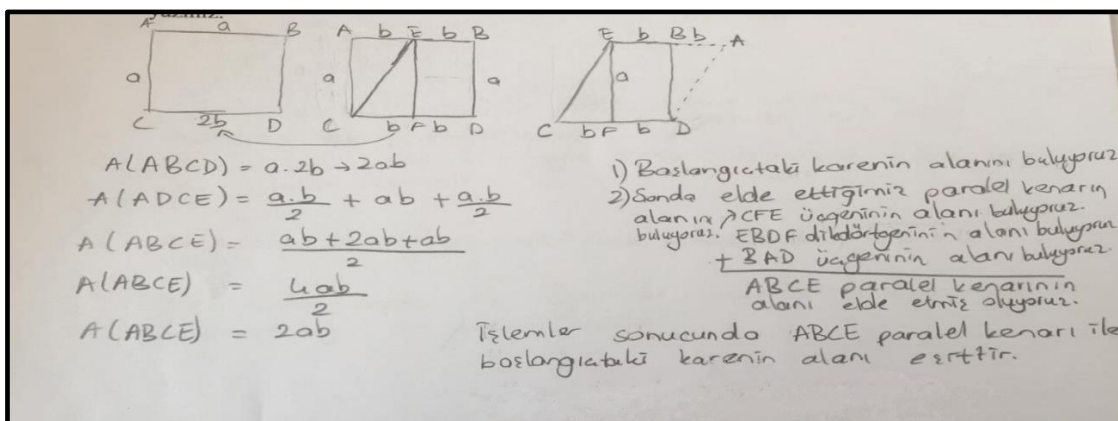 yazınız.
A a B
a
C 2b D
A b E b B
a a
C b F b D
E b B b A
a
C b F b D
A(ABCD) = a.2b → 2ab
A(ADCE) = a.b/2 + ab + a.b/2
A(ABCE) = ab+2ab+ab/2
A(ABCE) = 4ab/2
A(ABCE) = 2ab
1) Başlangıctaki karenin alanını buluyoruz
2) Sonda elde ettiğimiz paralel kenarın
alanını buluyoruz.
→ CFE üçgeninin alanı buluyoruz.
EBDF dikdörtgeninin alanı buluyoruz
+ BAD üçgeninin alanı buluyoruz
ABCE paralel kenarının
alanı elde etmiş oluyoruz.
İşlemler sonucunda ABCE paralel kenarı ile
başlangıctaki karenin alanı eşittir.